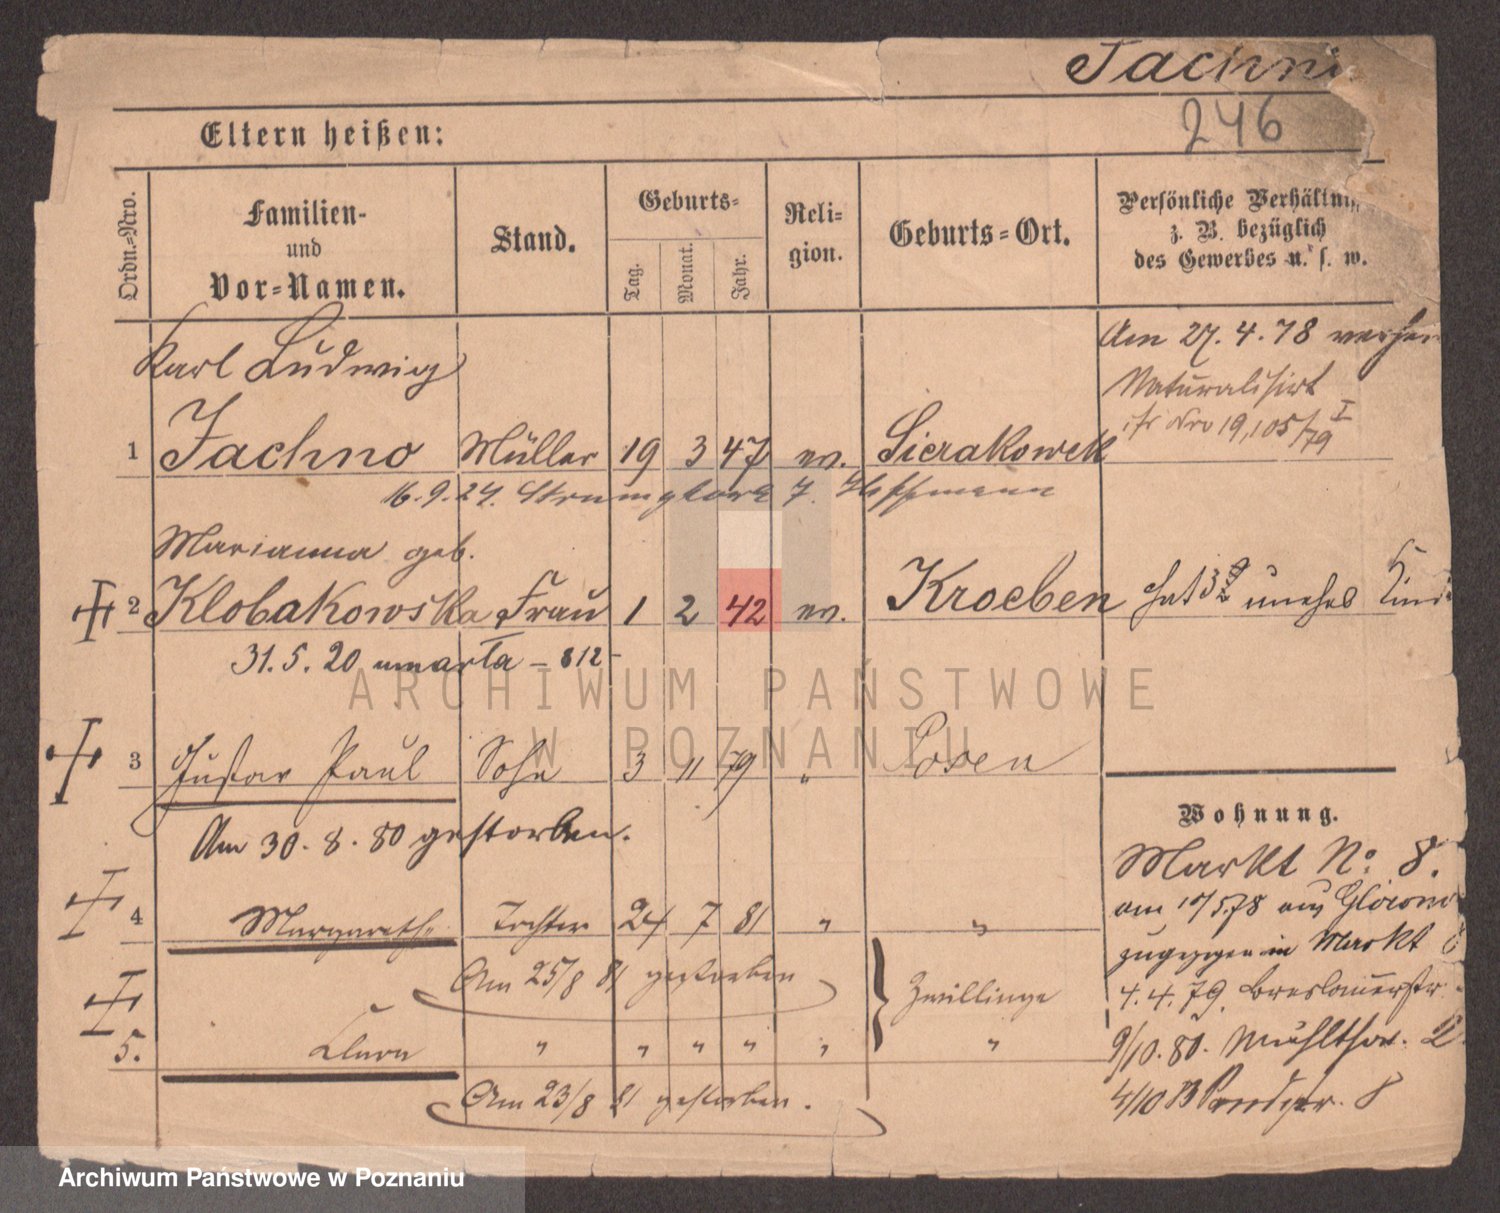 Jachn
246
Eltern heißen:
Ordn.=Nro.
Familien-
und
Vor=Namen.
Stand.
Geburts=
Tag.
Monat.
Jahr.
Reli=
gion.
Geburts=Ort.
Persönliche Verhältni
z. B. bezüglich
des Gewerbes u. s. w.
Karl Ludwig
Am 27. 4. 78
Naturalisirt
Nro 19,105/79 I
1 Jachno Müller 19 3 47 ev. Sierakowek
16.9.24. 7. Hoffmann
Marianna geb.
2 Klobakowska Frau 1 2 42 ev. Kroeben hat 3 unehel Kind
31.5.20 umarła - 812 -
3 Gustav Paul Sohn 3 11 79 " Posen
Am 30. 8. 80 gestorben.
4 Margarethe Tochter 24 7 81 " "
Am 25/8 81 gestorben
Zwillinge
5. Clara " " " " " "
Am 23/8 81 gestorben.
Wohnung.
Markt No: 8.
am 10/5.78 aus
zugezogen in Markt
4. 4. 79. Breslauerstr
9/10. 80. Mühlthor.
4/10 8
ARCHIWUM PAŃSTWOWE
W POZNANIU
Archiwum Państwowe w Poznaniu